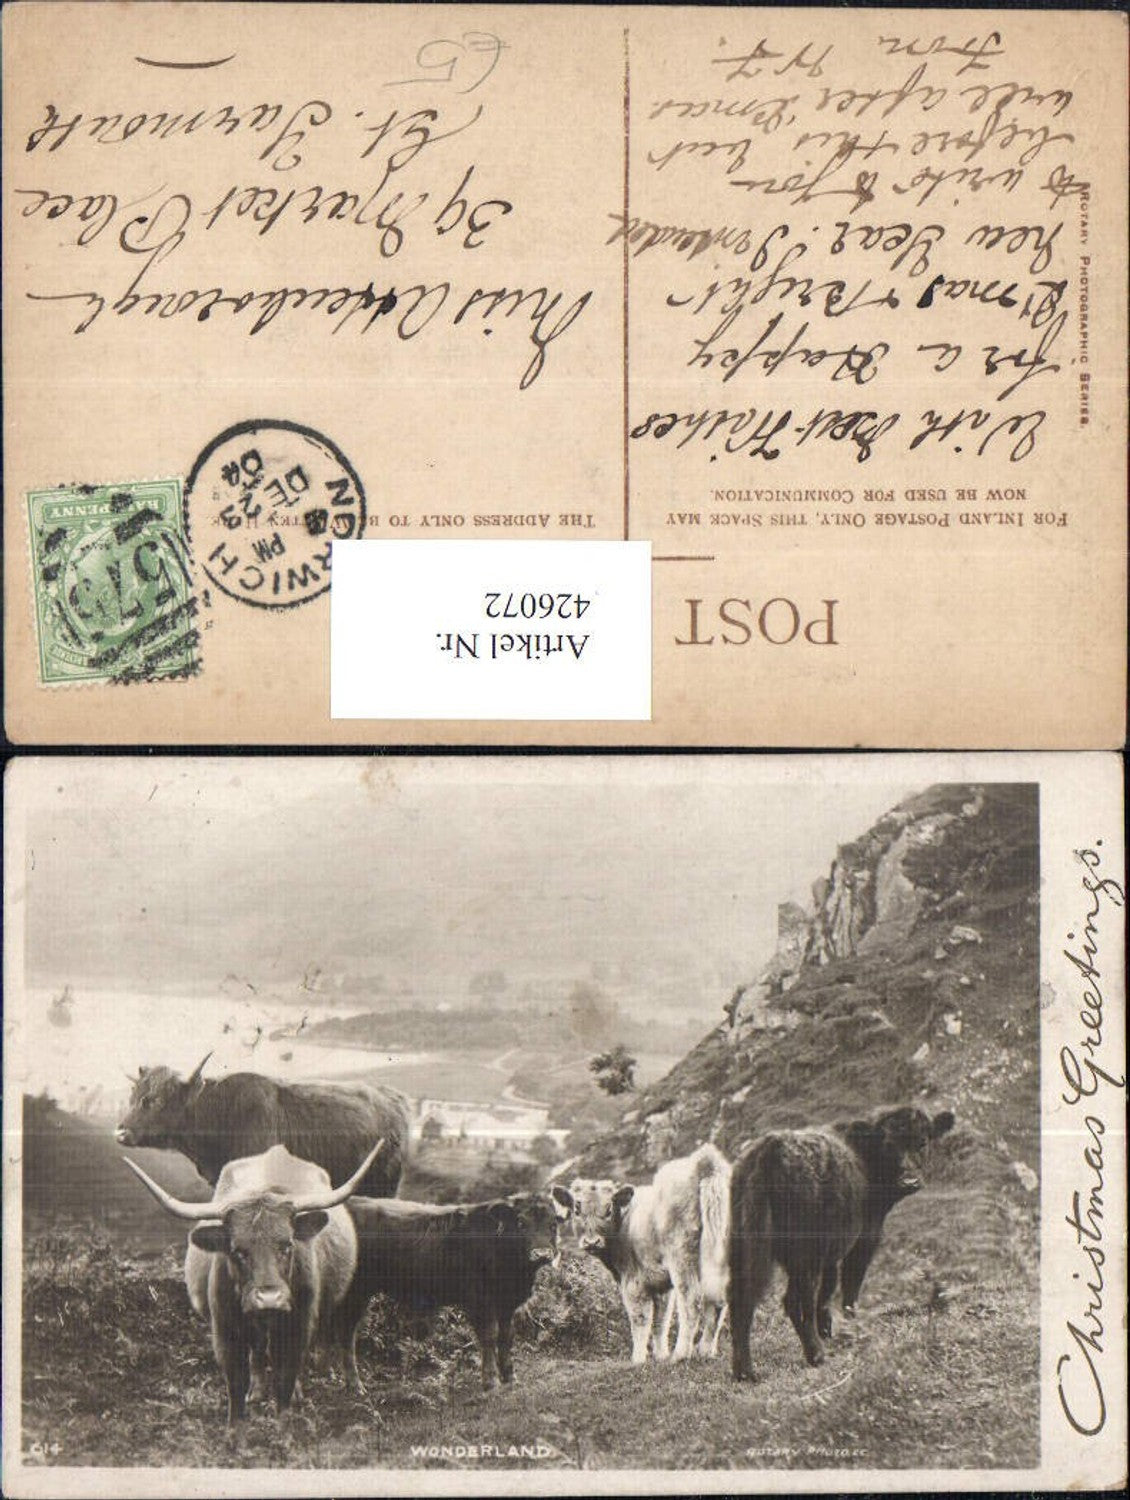 POST
FOR INLAND POSTAGE ONLY, THIS SPACE MAY
NOW BE USED FOR COMMUNICATION.
THE ADDRESS ONLY TO BE
With best Wishes
for a Happy
Xmas & Bright
New Year. I intended
to write to you
before this but
will after Xmas
From W F.
ROTARY PHOTOGRAPHIC SERIES.
Miss Attenborough
39 Market Place
Gt. Yarmouth
£5
NORWICH
PM
DE 23
04
575
HALFPENNY
Artikel Nr.
426072
Christmas Greetings.
614
WONDERLAND
ROTARY PHOTO.EC